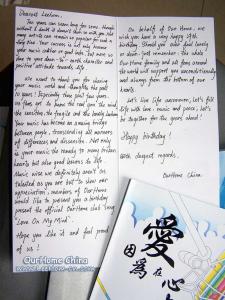 Dearest Leehom,
Ten years can seem long for some, though
without a doubt it doesn't seem so with you. Not
many artists can remain so popular over such a
long time. Your success is not only because
of your talent or good looks, but more so
due to your down-to-earth character and
positive attitude towards life.
We want to thank you for sharing
your music and thoughts the past
10 years! Especially these past few years,
us fans got to know the real you: the kind,
the sensitive, the fragile and the lonely Leehom.
Your music has become an amazing bridge
between people, transcending all manners
of differences and dissension. Not only
is your music the remedy to many broken
hearts but also good lessons to life.
Music wise we definitely aren't as
talented as you are but to show our
appreciation, members of OurHome
would like to present you a birthday
present: the official OurHome club song
"Love On My Mind".
Hope you like it and feel proud
of us!
On behalf of OurHome, we
wish you have a very happy 29th
birthday. Should you ever feel lonely
or down, just remember: the whole
OurHome family and all fans around
the world will support you unconditionally
and always from the bottom of our
hearts.
Let's live life uncommon, let's fill
life with love, music and peace; let's
be together for the years ahead!
Happy birthday!
With deepest regards,
OurHome China
OurHome China
愛
因為
在心